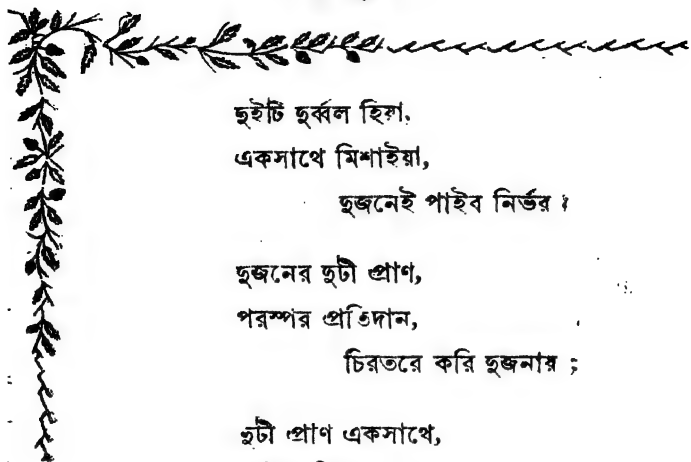 দুইটি দুর্ব্বল হিয়া,
একসাথে মিশাইয়া,
দুজনেই পাইব নির্ভর ;
দুজনের দুটী প্রাণ,
পরস্পর প্রতিদান,
চিরতরে করি দুজনার ;
দুটী প্রাণ একসাথে,